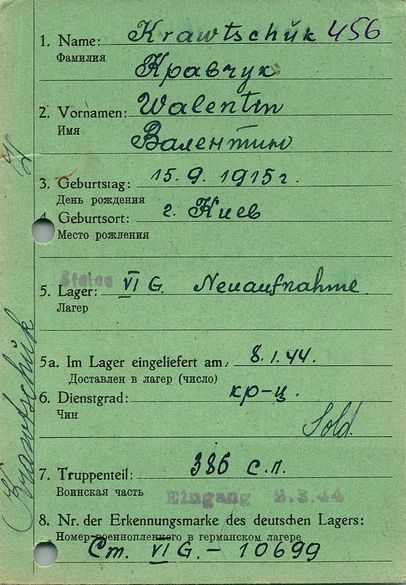 1. Name: Krawtschuk 456
Фамилия
Кравчук
2. Vornamen: Walentin
Имя
Валентин
3. Geburtstag: 15.9.1915 г.
День рождения
4. Geburtsort: г. Киев
Место рождения
Stalag
5. Lager: VI G. Neuaufnahme
Лагер
5a. Im Lager eingeliefert am: 8.1.44.
Доставлен в лагер (число)
6. Dienstgrad: кр-ц.
Чин
Sold.
7. Truppenteil: 386 с.п.
Воинская часть
Eingang 2.3.44
8. Nr. der Erkennungsmarke des deutschen Lagers:
Номер военнопленного в германском лагере
Ст. VI G. - 10699
Krawtschuk